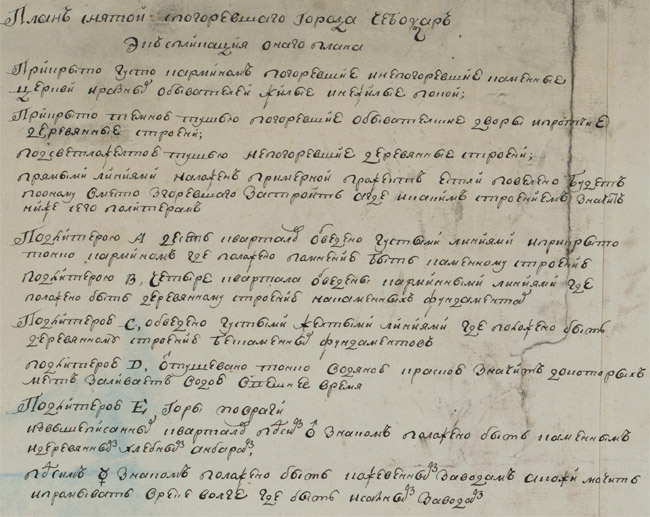 Планъ снятой погоревшаго Города Чебоxаръ
Экспликация онаго плана
Прикрыто густо кармином погоревшие инепогоревшие каменные
церкви иразных обывателей жилые инежилые покои;
Прикрыто темною тушью погоревшие обывателские дворы ипротчие
деревянные строении;
подсветложелтою тушью непогоревшие деревянные строении;
прямыми линиями наложен примерной прожектъ естли повелено будетъ
пооному вместо згоревшаго застроить агде какимъ строениемъ значитъ
ниже сего политерамъ
Подлитерою А десеть кварталовъ обведено густыми линиями иприкрыто
тонко карминомъ где положено полнение быть каменному строению
подлитерою В, четыре квартала обведены карминными линиями где
положено быть деревянному строению накаменныхъ фундаментахъ
Подлитерою С, обведено густыми желтыми линиями где положено быть
деревянному строению безкаменныхъ фундаментовъ
подлитерою D, отушевано тонко водяною краскою значитъ докоторыхъ
местъ заливаетъ водою вешнее время
Подлитерою Е, Горы иовраги
извышеписанныхъ кварталовъ подсимъ ♁ знакомъ положено быть каменнымъ
идеревяннымъ хлебнымъ анбарамъ;
подсимъ ☿ знакомъ положено быть кожевеннымъ заводамъ акожи мочить
ипромывать вреке волге где быть икожнымъ заводамъ